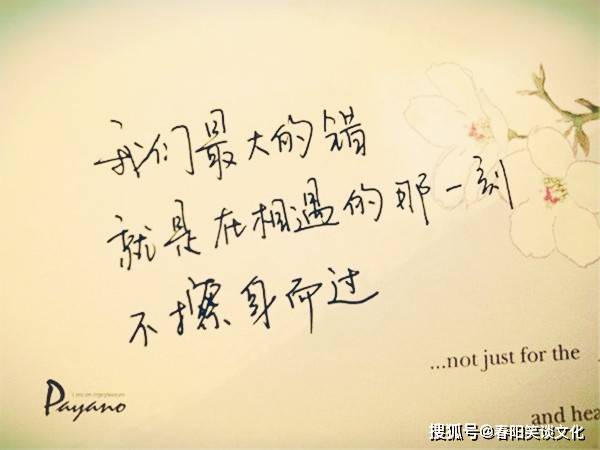 我们最大的错
就是在相遇的那一刻
不擦身而过
...not just for the
and hea
Payano
搜狐号@春阳笑谈文化